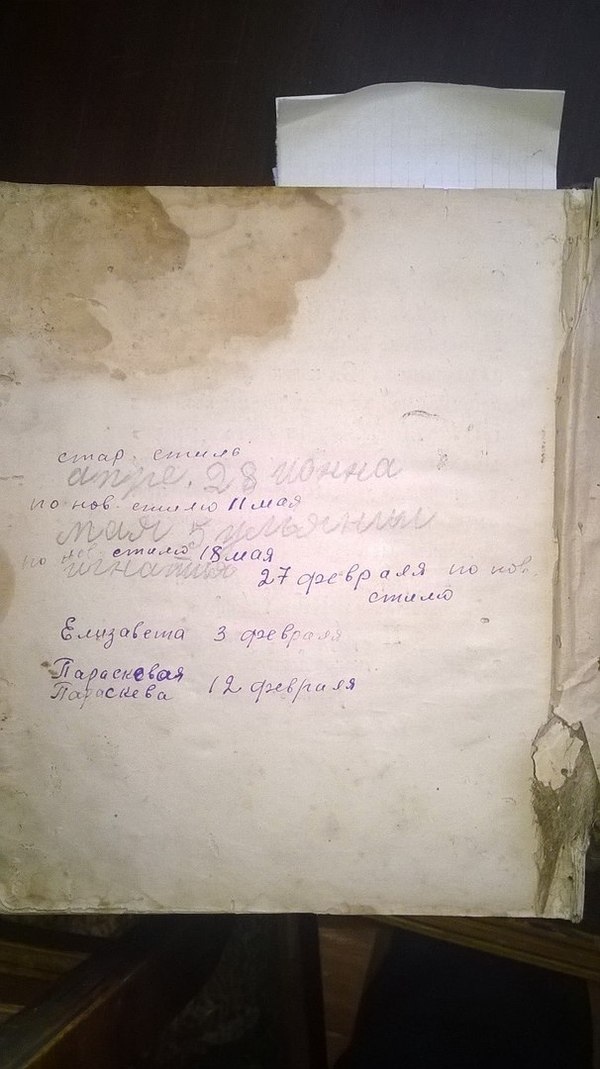 стар. стиль
апре. 28 ионна
по нов. стилю 11 мая
мая 5 ульянии
по нов стилю 18 мая
игнатия 27 февраля по нов.
стилю
Елизавета 3 февраля
Парасковая
Параскева 12 февраля